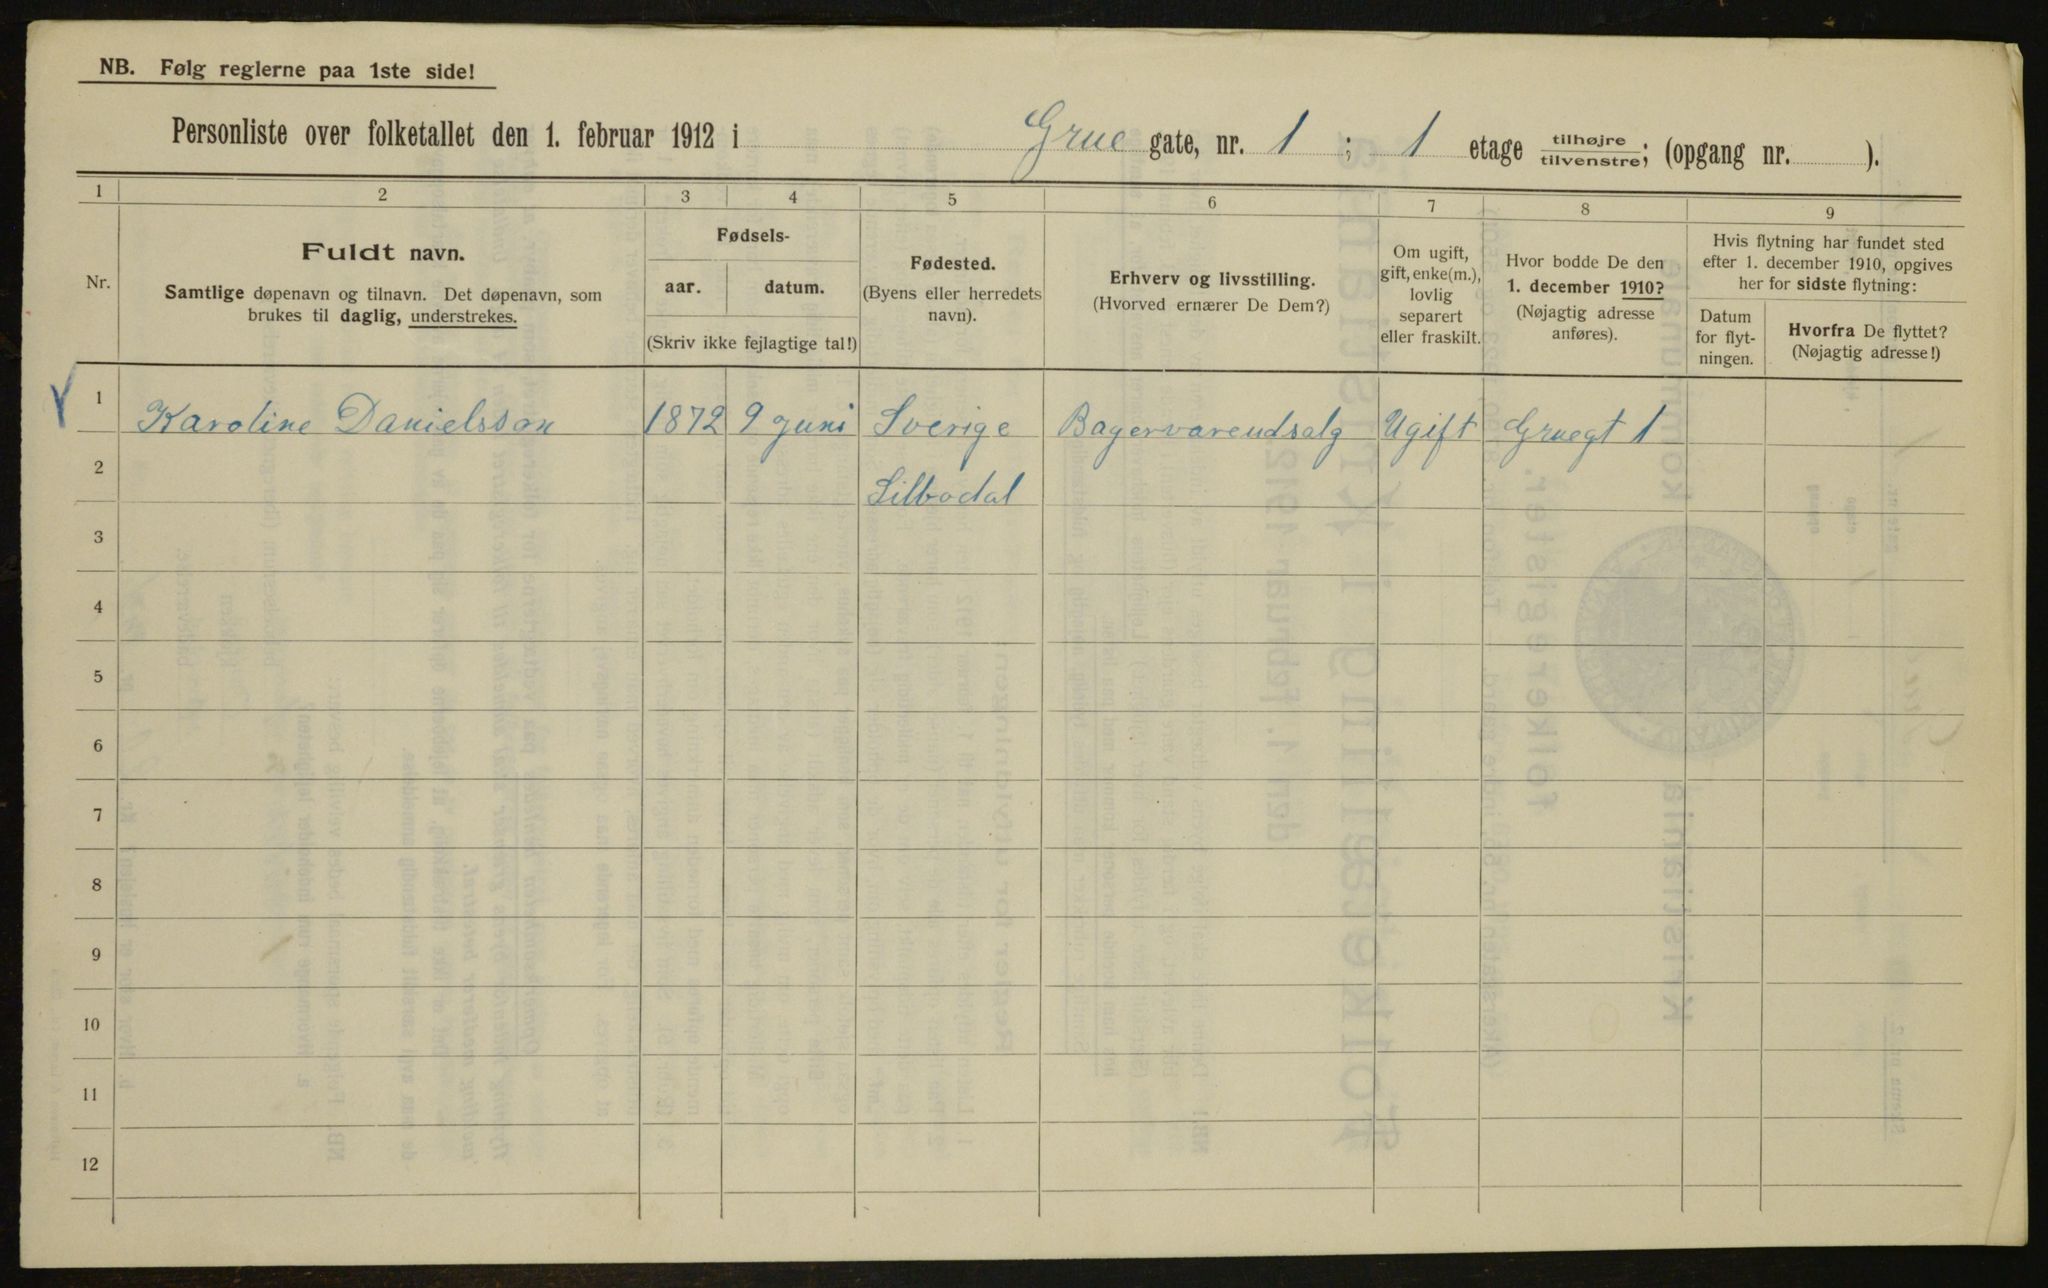 NB. Følg reglerne paa 1ste side!
Personliste over folketallet den 1. februar 1912 i Grue gate, nr. 1 ; 1 etage tilhøjre tilvenstre; (opgang nr. ).
1 2 3 4 5 6 7 8 9
Nr.
Fuldt navn.
Samtlige døpenavn og tilnavn. Det døpenavn, som
brukes til daglig, understrekes.
Fødsels-
aar. datum.
(Skriv ikke fejlagtige tal!)
Fødested.
(Byens eller herredets
navn).
Erhverv og livsstilling.
(Hvorved ernærer De Dem?)
Om ugift,
gift, enke(m.),
lovlig
separert
eller fraskilt.
Hvor bodde De den
1. december 1910?
(Nøjagtig adresse
anføres).
Hvis flytning har fundet sted
efter 1. december 1910, opgives
her for sidste flytning:
Datum
for flyt-
ningen.
Hvorfra De flyttet?
(Nøjagtig adresse!)
1 Karoline Danielsson 1872 9 juni Sverige Bagervareudsalg Ugift Gruegt 1
2 Silbodal
3
4
5
6
7
8
9
10
11
12